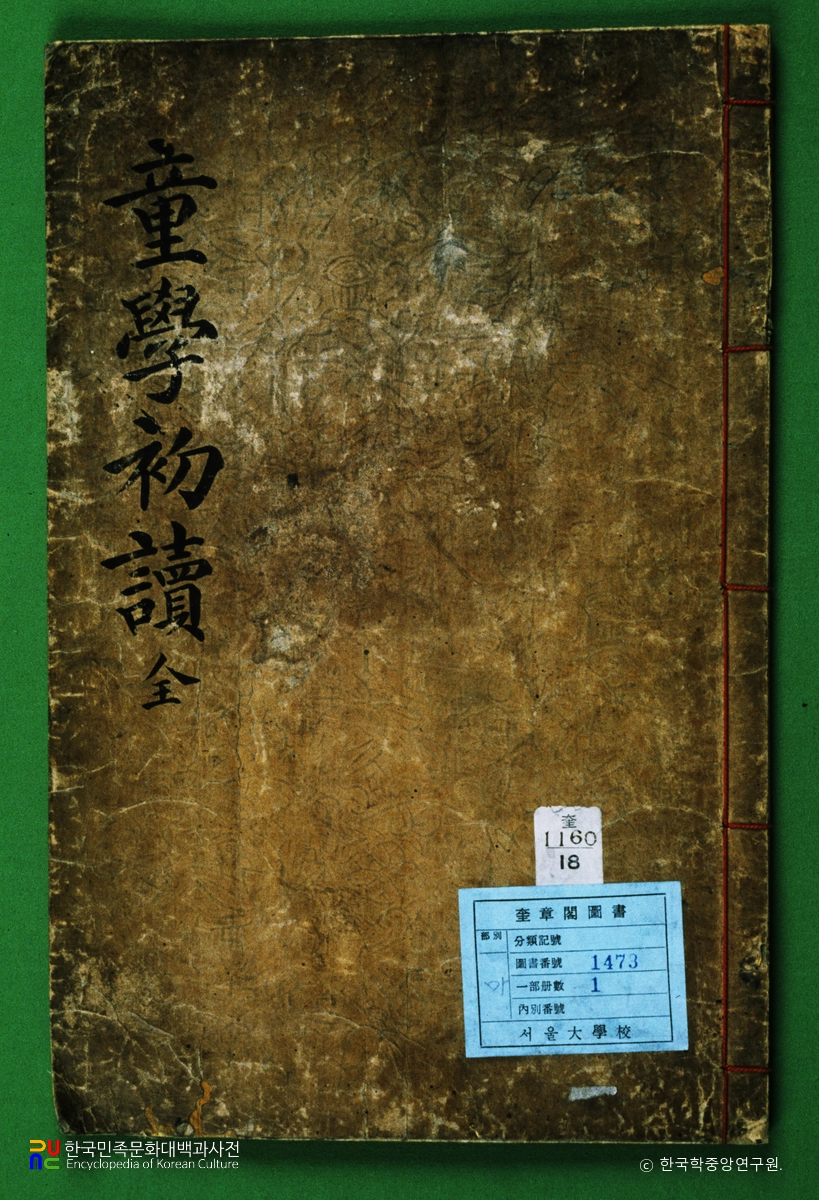 童學初讀 全
奎
1160
18
奎章閣圖書
部別
分類記號
圖書番號 1473
一部册數 1
內別番號
서울大學校
한국민족문화대백과사전
Encyclopedia of Korean Culture
ⓒ 한국학중앙연구원.